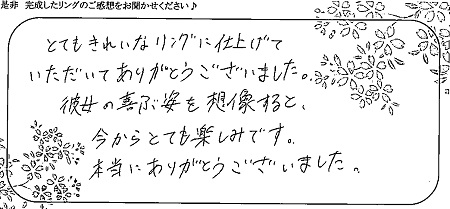 是非 完成したリングのご感想をお聞かせください♪
とてもきれいなリングに仕上げて
いただいてありがとうございました。
彼女の喜ぶ姿を想像すると、
今からとても楽しみです。
本当にありがとうございました。